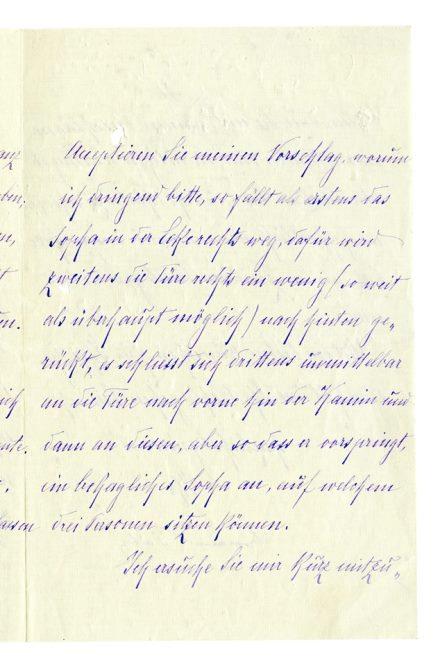 anz
Acceptieren Sie meinen Vorschlag, worum
ben;
ich dringend bitte, so fällt als erstens das
en,
Sopha in der Ecke rechts weg, dafür wird
zweitens die Türe rechts ein wenig (so weit
en.
als überhaupt möglich) nach hinten ge„
rückt, es schliesst sich drittens unmittelbar
ich
an die Türe nach vorne hin der Kamin und
dann an diesen, aber so dass er vorspringt,
ein behagliches Sopha an, auf welchem
lassen
drei Personen sitzen können.
Ich ersuche Sie mir kurz mitzu„